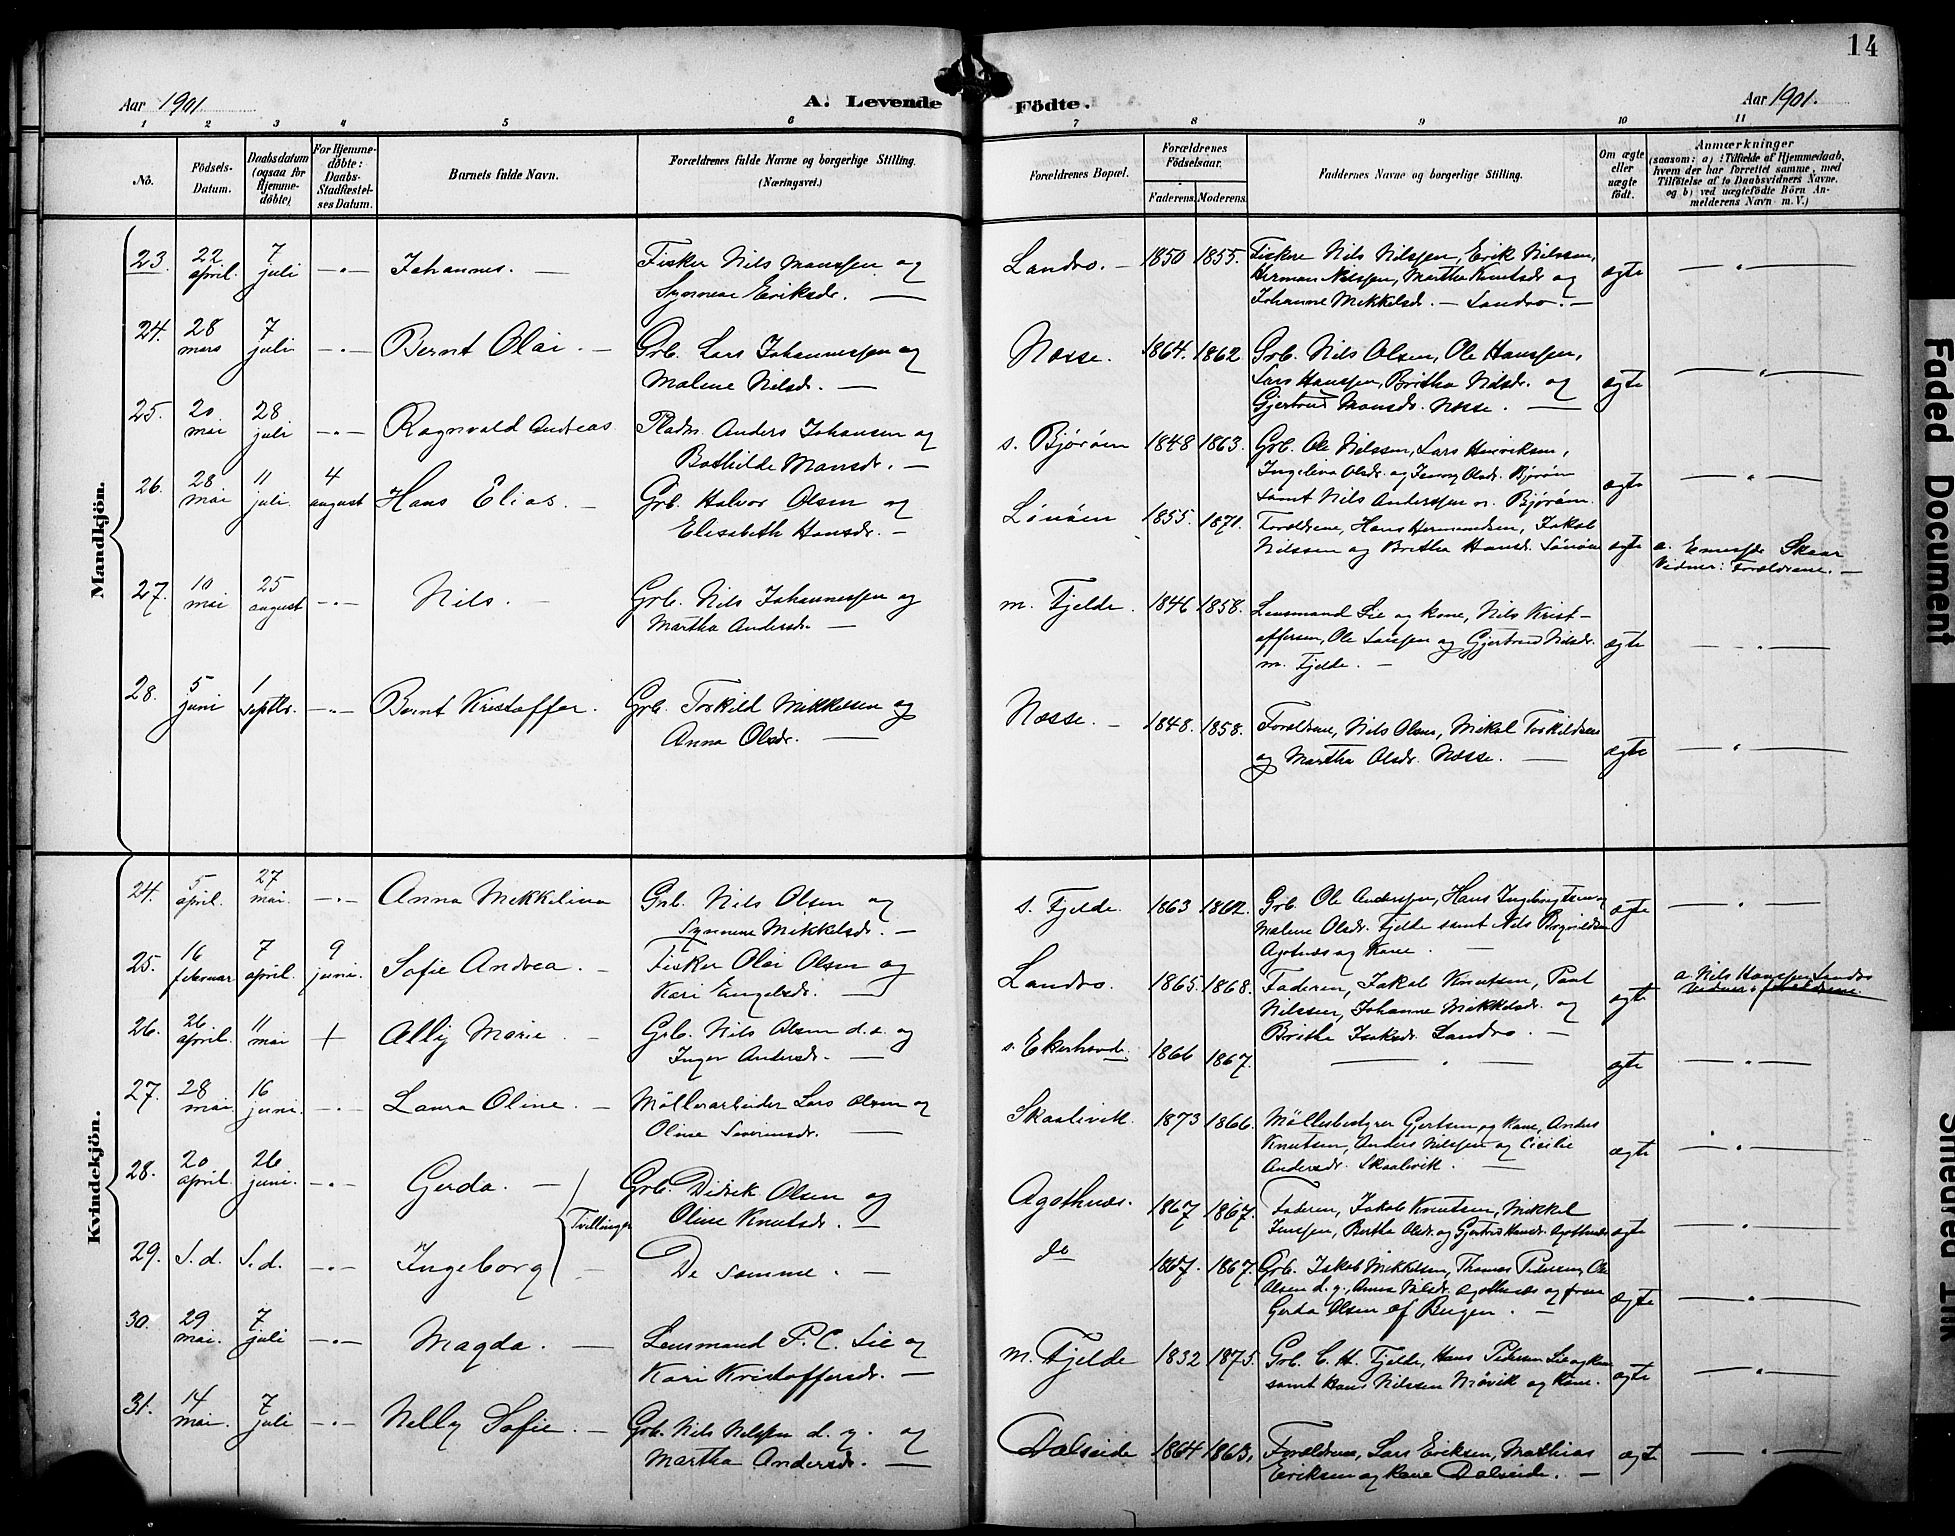 14
Aar 1901
A. Levende
Födte.
Aar 1901.
1 2 3 4 5 6 7 8 9 10 11
No.
Födsels-
Datum.
Daabsdatum
(ogsaa for
Hjemme-
døbte)
For Hjemme-
døbte:
Daabs-
Stadfæstel-
ses Datum.
Barnets fulde Navn.
Forældrenes fulde Navne og borgerlige Stilling.
(Næringsvei.)
Forældrenes Bopæl.
Forældrenes
Födselsaar.
Faderens. Moderens.
Faddernes Navne og borgerlige Stilling.
Om ægte
eller
uægte
født.
Anmærkninger
(saasom: a) i Tilfælde af Hjemmedaab,
hvem der har forrettet samme, med
Tilføtelse af to Daabsvidners Navne,
og b) ved uægtefödte Börn An-
melderens Navn m. V.)
Mandkjön.
23. 22 april. 7 juli -"- Johannes. —
Fisker Nils Monssen og
Synneve Eriksdr. —
Landro. — 1850 1855.
Fiskere Nils Nilssen, Erik Nilssen,
Herman Nilssen, Martha Knutsdr og
Johanne Mikkelsdr. — Landro. —
ægte
24. 28 mars 7 juli -"- Bernt Olai. —
Grb. Lars Johannessen og
Malene Nilsdr. —
Næsse. 1864. 1862
Grb. Nils Olsen, Ole Hanssen,
Lars Hanssen, Britha Nilsdr. og
Gjertrud Monsdr. Næsse. —
ægte
25. 20 mai 28 juli -"- Ragnvald Andreas
Pladsm. Anders Johansen og
Bothilde Mansdr. —
s. Bjørøen 1848 1863.
Grb. Ole Nilssen, Lars Henriksen,
Ingelina Olsdr. og Jenny Olsdr. Bjørøen
samt Nils Anderssen n. Bjørøen.
ægte
26. 28 mai 11 juli. 4 august Hans Elias. —
Grb. Halvor Olsen og
Elisabeth Hansdr. —
Lønøen 1855. 1871.
Forældrene, Hans Hermandsen, Jakob
Nilssen og Britha Hansdr. Lønøen
ægte
a. Skaar
Vidner: Forældrene. —
27. 10 mai 25 august -"- Nils. —
Grb. Nils Johannessen og
Martha Andersdr. —
m. Fjelde. 1846 1858.
Lensmand Lie og kone, Nils Krist-
offersen, Ole Larssen og Gjertrud Nilsdr.
m. Fjelde. —
ægte
28. 5 juni 1 Septbr. -"- Bernt Kristoffer.
Grb. Torkild Mikkelsen og
Anna Olsdr. —
Næsse. — 1848. 1858.
Forældrene, Nils Olsen, Mikal Torkildsen
og Martha Olsdr. Næsse. —
ægte
Kvindekjön.
24. 5 april. 27 mai. -"- Anna Mikkelina
Grb. Nils Olsen og
Synneve Mikkelsdr. —
s. Fjelde. 1863 1862.
Grb. Ole Anderssen, Hans Ingebrigtsen og
Malene Olsdr. Fjelde samt Nils
Agotnæs og Kone. —
ægte
25. 16 februar 7 april. 9 juni. Sofie Andrea. —
Fisker Olai Olsen og
Kari Engelsdr. —
Landro. 1865. 1868.
Faderen, Jakob Knutsen, Paul
Nilssen, Johanne Mikkelsdr. og
Britha Isaksdr. Landro. —
ægte
a. Nils Hanssen Landro
Vidner: forældrene.
26. 26 april. 11 mai + Ally Marie —
Grb. Nils Olsen d.e. og
Inger Andersdr. —
s. Ekerhovde 1866 1867.
ægte
27. 28 mai 16 juni. -"- Laura Oline. —
Møllerarbeider Lars Olsen og
Oline Severinsdr. —
Skaalevik. 1873 1866.
Møllebestyrer Gjertsen og kone, Anders
Knutsen, Anders Nilssen og Cicilie
Andersdr. Skaalevik. —
ægte
28. 20 april. 26 juni. -"- Gerda. —
Tvillinger
Grb. Didrik Olsen og
Oline Knutsdr. —
Agothnæs. 1867 1867.
Faderen, Jakob Knutsen, Mikkel
Jenssen, Bertha Olsdr. og Gjertrud Hansdr. Agothnæs
ægte
29. S.d. S.d. -"- Ingeborg —
De samme. —
do 1867. 1867.
Grb. Jakob Mikkelsen, Thomas Petersen, Ole
Olsen d.y., Anna Nilsdr. Agothnæs og frue
Gerda Olsen af Bergen. —
ægte
30. 29 mai. 7 juli -"- Magda. —
Lensmand P. C. Lie og
Kari Kristoffersdr. —
m. Fjelde 1832 1875.
Grb. C. H. Fjelde, Hans Petersen Lie og kone
samt Hans Nilssen Møvik og kone.
ægte
31. 14 mai. 7 juli -"- Nelly Sofie. —
Grb. Nils Nilssen d. y. og
Martha Andersdr. —
Dalseide 1864 1863.
Forældrene, Lars Eriksen, Mathias
Eriksen og kone Dalseide. —
ægte
Faded Document
Smeared Ink